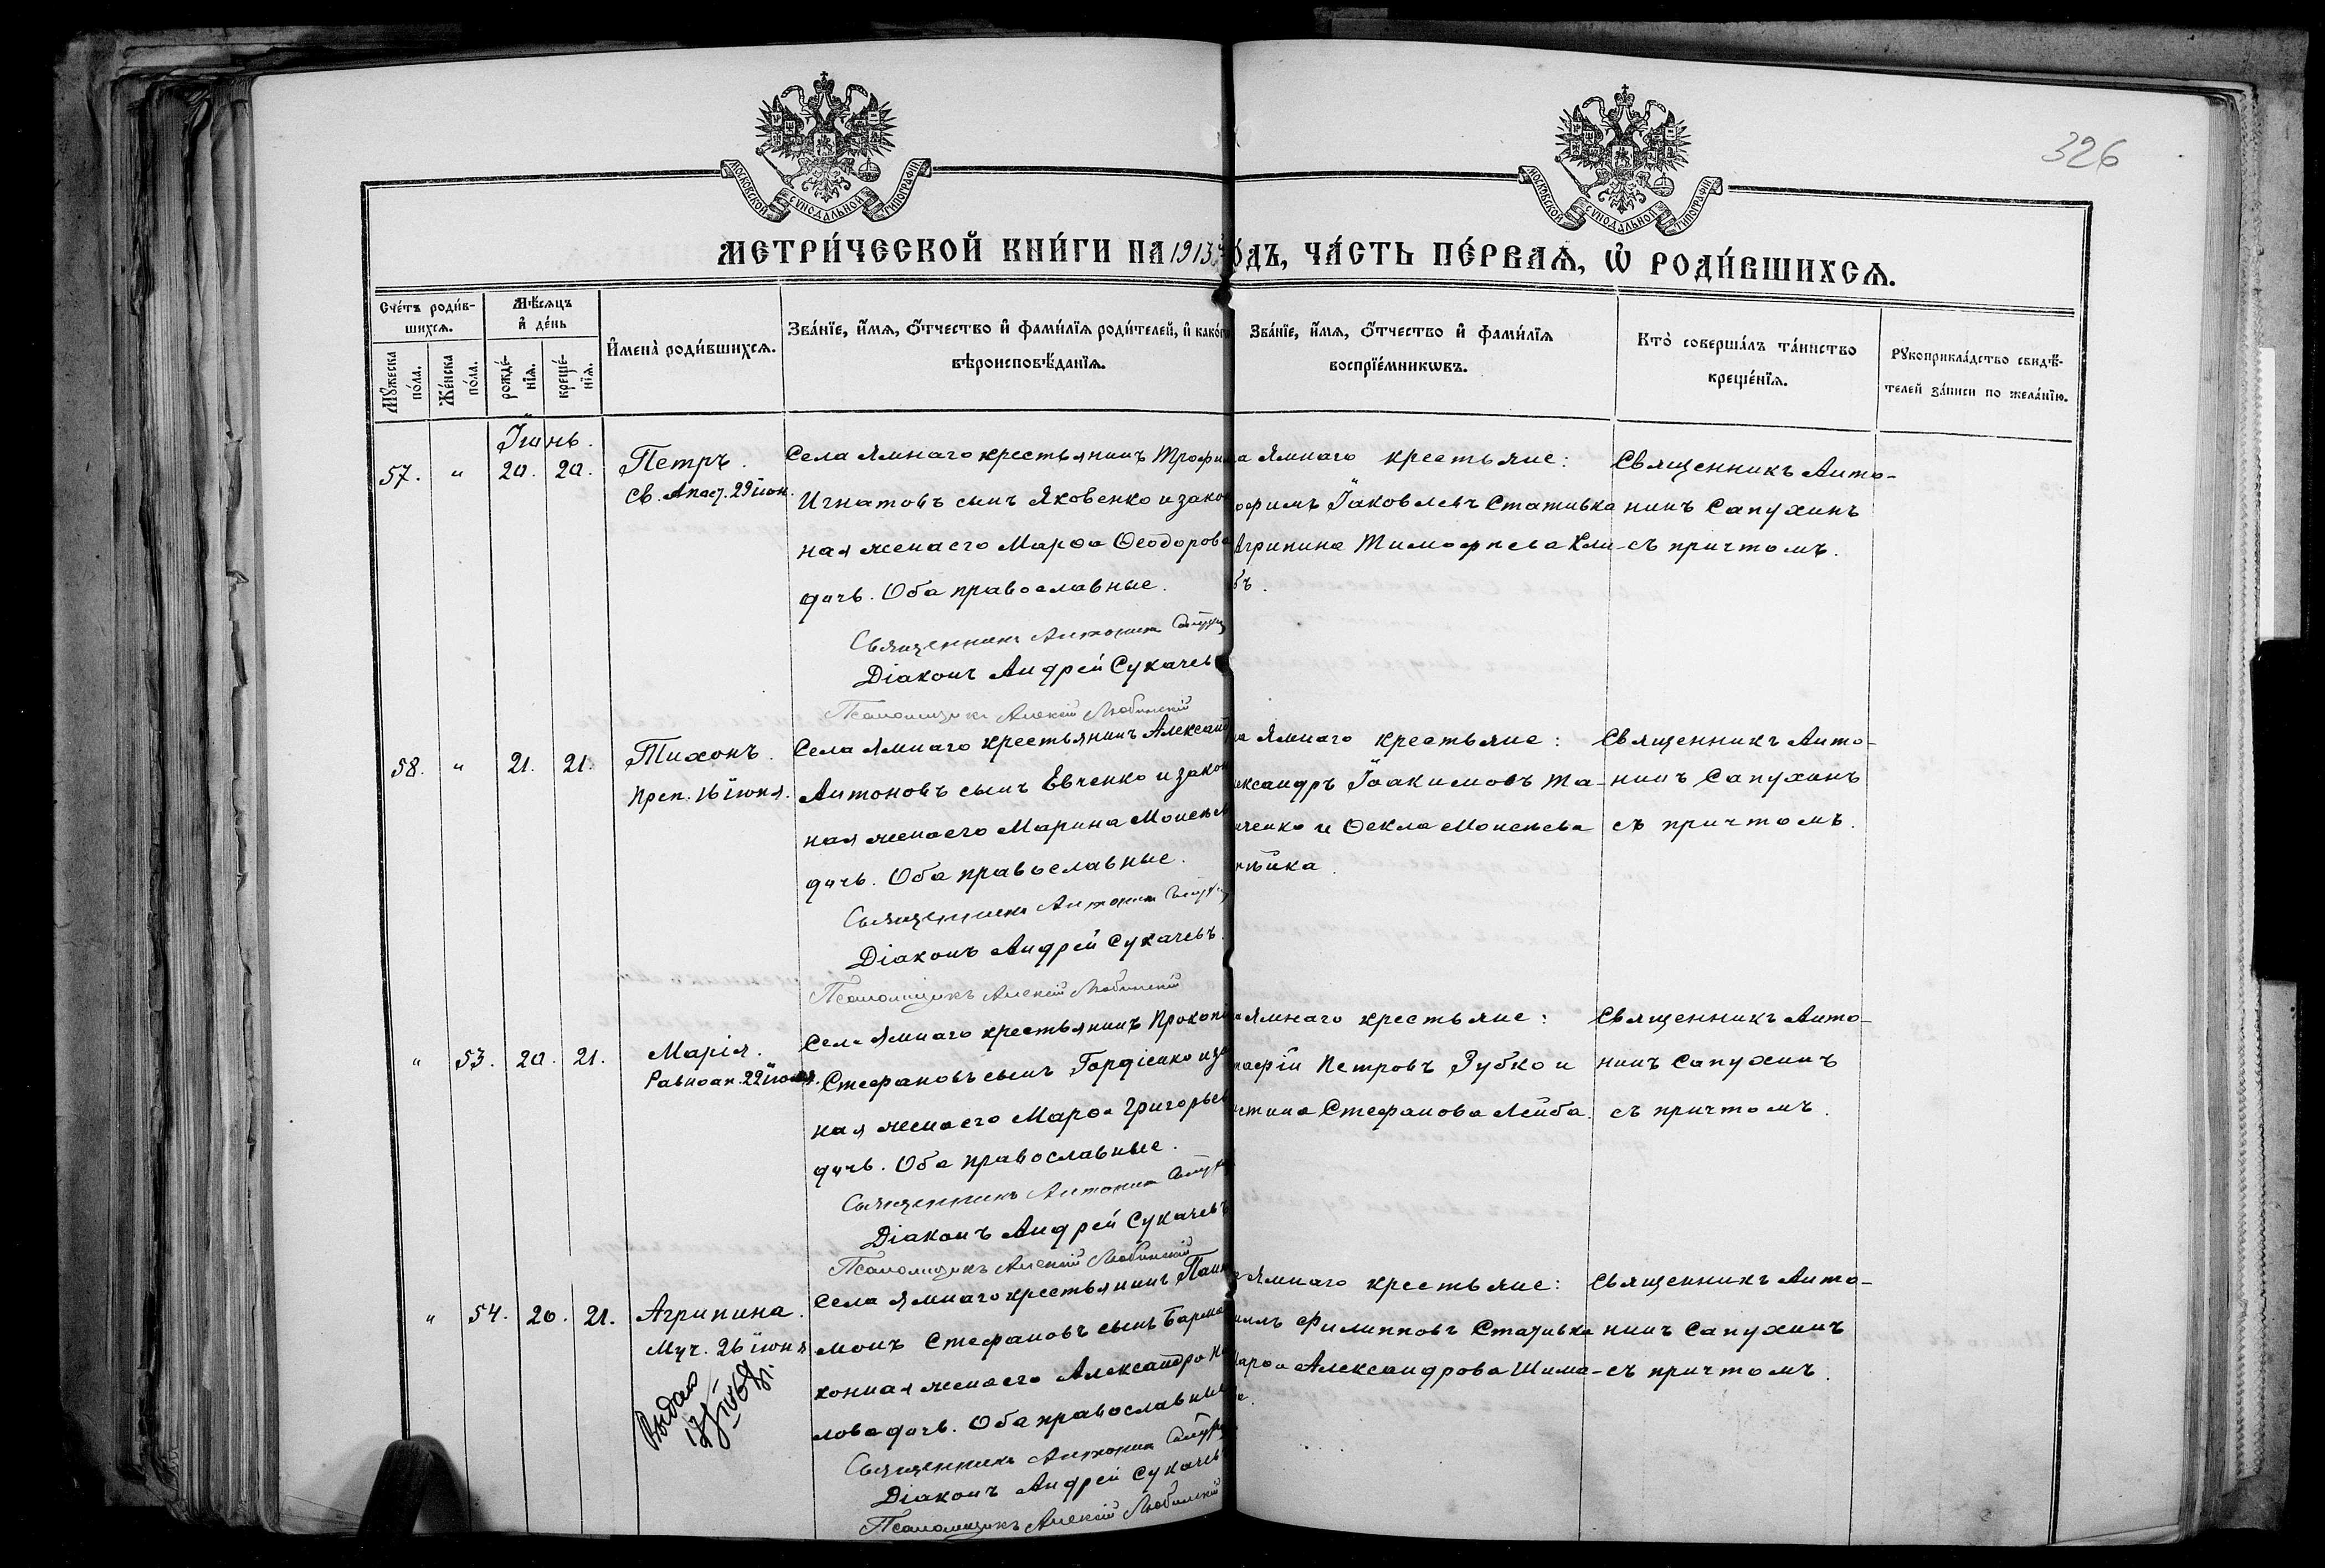 326
МОСКОВСКОЙ СѴНОДАЛЬНОЙ ТИПОГРАФІИ
МОСКОВСКОЙ СѴНОДАЛЬНОЙ ТИПОГРАФІИ
МЕТРИ́ЧЕСКОЙ КНИ́ГИ НА 1913 ГО́ДЪ, ЧА́СТЬ ПЕ́РВАѦ, Ѡ҆ РОДИ́ВШИХСѦ.
Сче́тъ роди́в-
шихсѧ.
Мѣ́сѧцъ
и҆ де́нь
Мꙋ́жеска по́ла.
Же́нска по́ла.
рожде́-
нїѧ.
креще́-
нїѧ.
И҆мена̀ роди́вшихсѧ.
Зва́нїе, и҆́мѧ, ѻ҆́тчество и҆ фами́лїѧ роди́телей, и҆ како́гѡ
вѣроисповѣ́данїѧ.
Зва́нїе, и҆́мѧ, ѻ҆́тчество и҆ фами́лїѧ
воспрїе́мникѡвъ.
Кто̀ соверша́лъ та́инство
креще́нїѧ.
Рꙋкоприкла́дство свидѣ́-
телей за́писи по жела́нїю.
Іюнь.
57. " 20. 20.
Петръ.
Св. Апос. 29 іюн.
Села Ямнаго крестьянинъ Трофим
Игнатовъ сынъ Яковенко и закон
ная жена его Марѳа Ѳеодорова
дочь. Оба православные.
Священникъ Антонин Сапухин
Діаконъ Андрей Сукачевъ
Псаломщикъ Алексій Любинскій
а Ямнаго крестьяне:
офимъ Іаковлевъ Стативка
Агрипина Тимофеева Кли-
бъ.
Священникъ Анто-
нинъ Сапухинъ
съ причтомъ.
58. " 21. 21.
Тихонъ.
Преп. 16 іюня.
Села Ямнаго крестьянинъ Александ
Антоновъ сынъ Евченко и закон
ная жена его Марина Моисеев
дочь. Оба православные.
Священникъ Антонин Сапухин
Діаконъ Андрей Сукачевъ.
Псаломщикъ Алексій Любинскій
а Ямнаго крестьяне:
ександръ Іоакимовъ Та-
ченко и Ѳекла Моисеева
ѣйка.
Священникъ Анто-
нинъ Сапухинъ
съ причтомъ.
" 53. 20. 21.
Марія.
Равноап. 22 іюля.
Села Ямнаго крестьянинъ Прокопі
Стефановъ сынъ Гордіенко и за
ная жена его Марѳа Григорьев
дочь. Оба православные.
Священникъ Антонин Сапухин
Діаконъ Андрей Сукачевъ
Псаломщикъ Алексій Любинскій
а Ямнаго крестьяне:
афій Петровъ Зубко и
стина Стефанова Лейба.
Священникъ Анто-
нинъ Сапухинъ
съ причтомъ.
" 54. 20. 21.
Агрипина.
Муч. 26 іюня
Села Ямнаго крестьянинъ Пант
монъ Стефановъ сынъ Барма
конная жена его Александра
лова дочь. Оба православные
Священникъ Антонин Сапухин
Діаконъ Андрей Сукачевъ
Псаломщикъ Алексій Любинскій
а Ямнаго крестьяне:
иллъ Филипповъ Стативка
Марѳа Александрова Шима-
Священникъ Анто-
нинъ Сапухинъ
съ причтомъ.